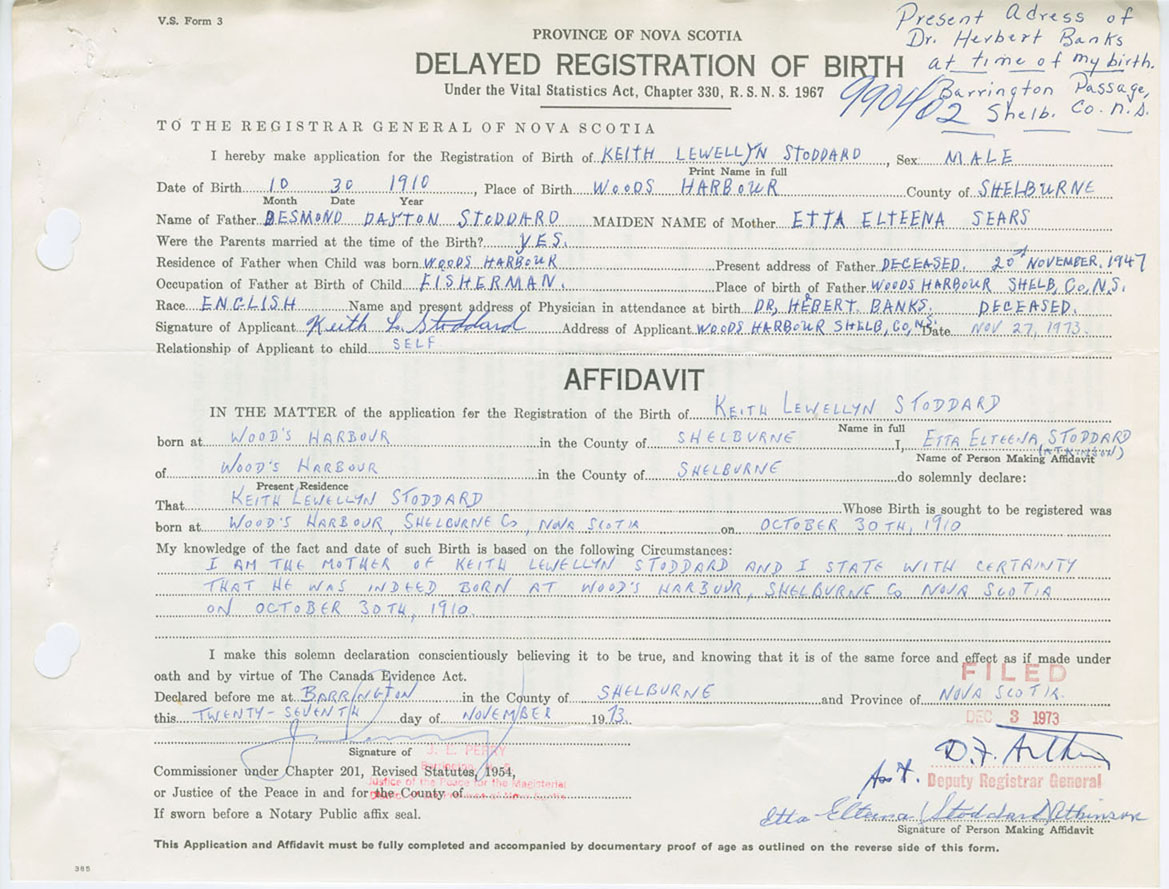 V.S. Form 3
Present Adress of
Dr. Herbert Banks
at time of my birth.
Barrington Passage,
Shelb. Co. N.S.
PROVINCE OF NOVA SCOTIA
DELAYED REGISTRATION OF BIRTH
Under the Vital Statistics Act, Chapter 330, R.S.N.S. 1967
990402
TO THE REGISTRAR GENERAL OF NOVA SCOTIA
I hereby make application for the Registration of Birth of KEITH LEWELLYN STODDARD, Sex MALE
Print Name in full
Date of Birth 10 30 1910, Place of Birth WOODS HARBOUR County of SHELBURNE
Month Date Year
Name of Father DESMOND DAYTON STODDARD MAIDEN NAME of Mother ETTA ELTEENA SEARS
Were the Parents married at the time of the Birth? YES.
Residence of Father when Child was born WOODS HARBOUR Present address of Father DECEASED. 20th NOVEMBER, 1947
Occupation of Father at Birth of Child FISHERMAN. Place of birth of Father WOODS HARBOUR SHELB, Co, N.S.
Race ENGLISH Name and present address of Physician in attendance at birth DR, HEBERT. BANKS. DECEASED.
Signature of Applicant Keith L. Stoddard Address of Applicant WOODS HARBOUR SHELB, CO, N.S. Date NOV 27, 1973.
Relationship of Applicant to child SELF
AFFIDAVIT
IN THE MATTER of the application for the Registration of the Birth of KEITH LEWELLYN STODDARD
Name in full
born at WOOD'S HARBOUR in the County of SHELBURNE I, ETTA ELTEENA STODDARD
(ATKINSON)
Name of Person Making Affidavit
of WOOD'S HARBOUR in the County of SHELBURNE do solemnly declare:
Present Residence
That KEITH LEWELLYN STODDARD Whose Birth is sought to be registered was
born at WOOD'S HARBOUR, SHELBURNE Co, NOVA SCOTIA on OCTOBER 30TH, 1910
My knowledge of the fact and date of such Birth is based on the following Circumstances:
I AM THE MOTHER OF KEITH LEWELLYN STODDARD AND I STATE WITH CERTAINTY
THAT HE WAS INDEED BORN AT WOOD'S HARBOUR, SHELBURNE Co NOVA SCOTIA
ON OCTOBER 30TH, 1910.
I make this solemn declaration conscientiously believing it to be true, and knowing that it is of the same force and effect as if made under
oath and by virtue of The Canada Evidence Act.
FILED
Declared before me at BARRINGTON in the County of SHELBURNE and Province of NOVA SCOTIA
this TWENTY-SEVENTH day of NOVEMBER 1973.
DEC 3 1973
Signature of J. E. PERRY
Barrington, N. S.
Commissioner under Chapter 201, Revised Statutes, 1954,
Justice of the Peace for the Magisterial
or Justice of the Peace in and for the County of
If sworn before a Notary Public affix seal.
Ass't. Deputy Registrar General
Etta Elteena (Stoddard) Atkinson
Signature of Person Making Affidavit
This Application and Affidavit must be fully completed and accompanied by documentary proof of age as outlined on the reverse side of this form.
385